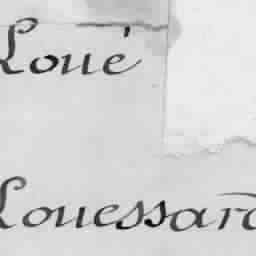 Loué
Louessard